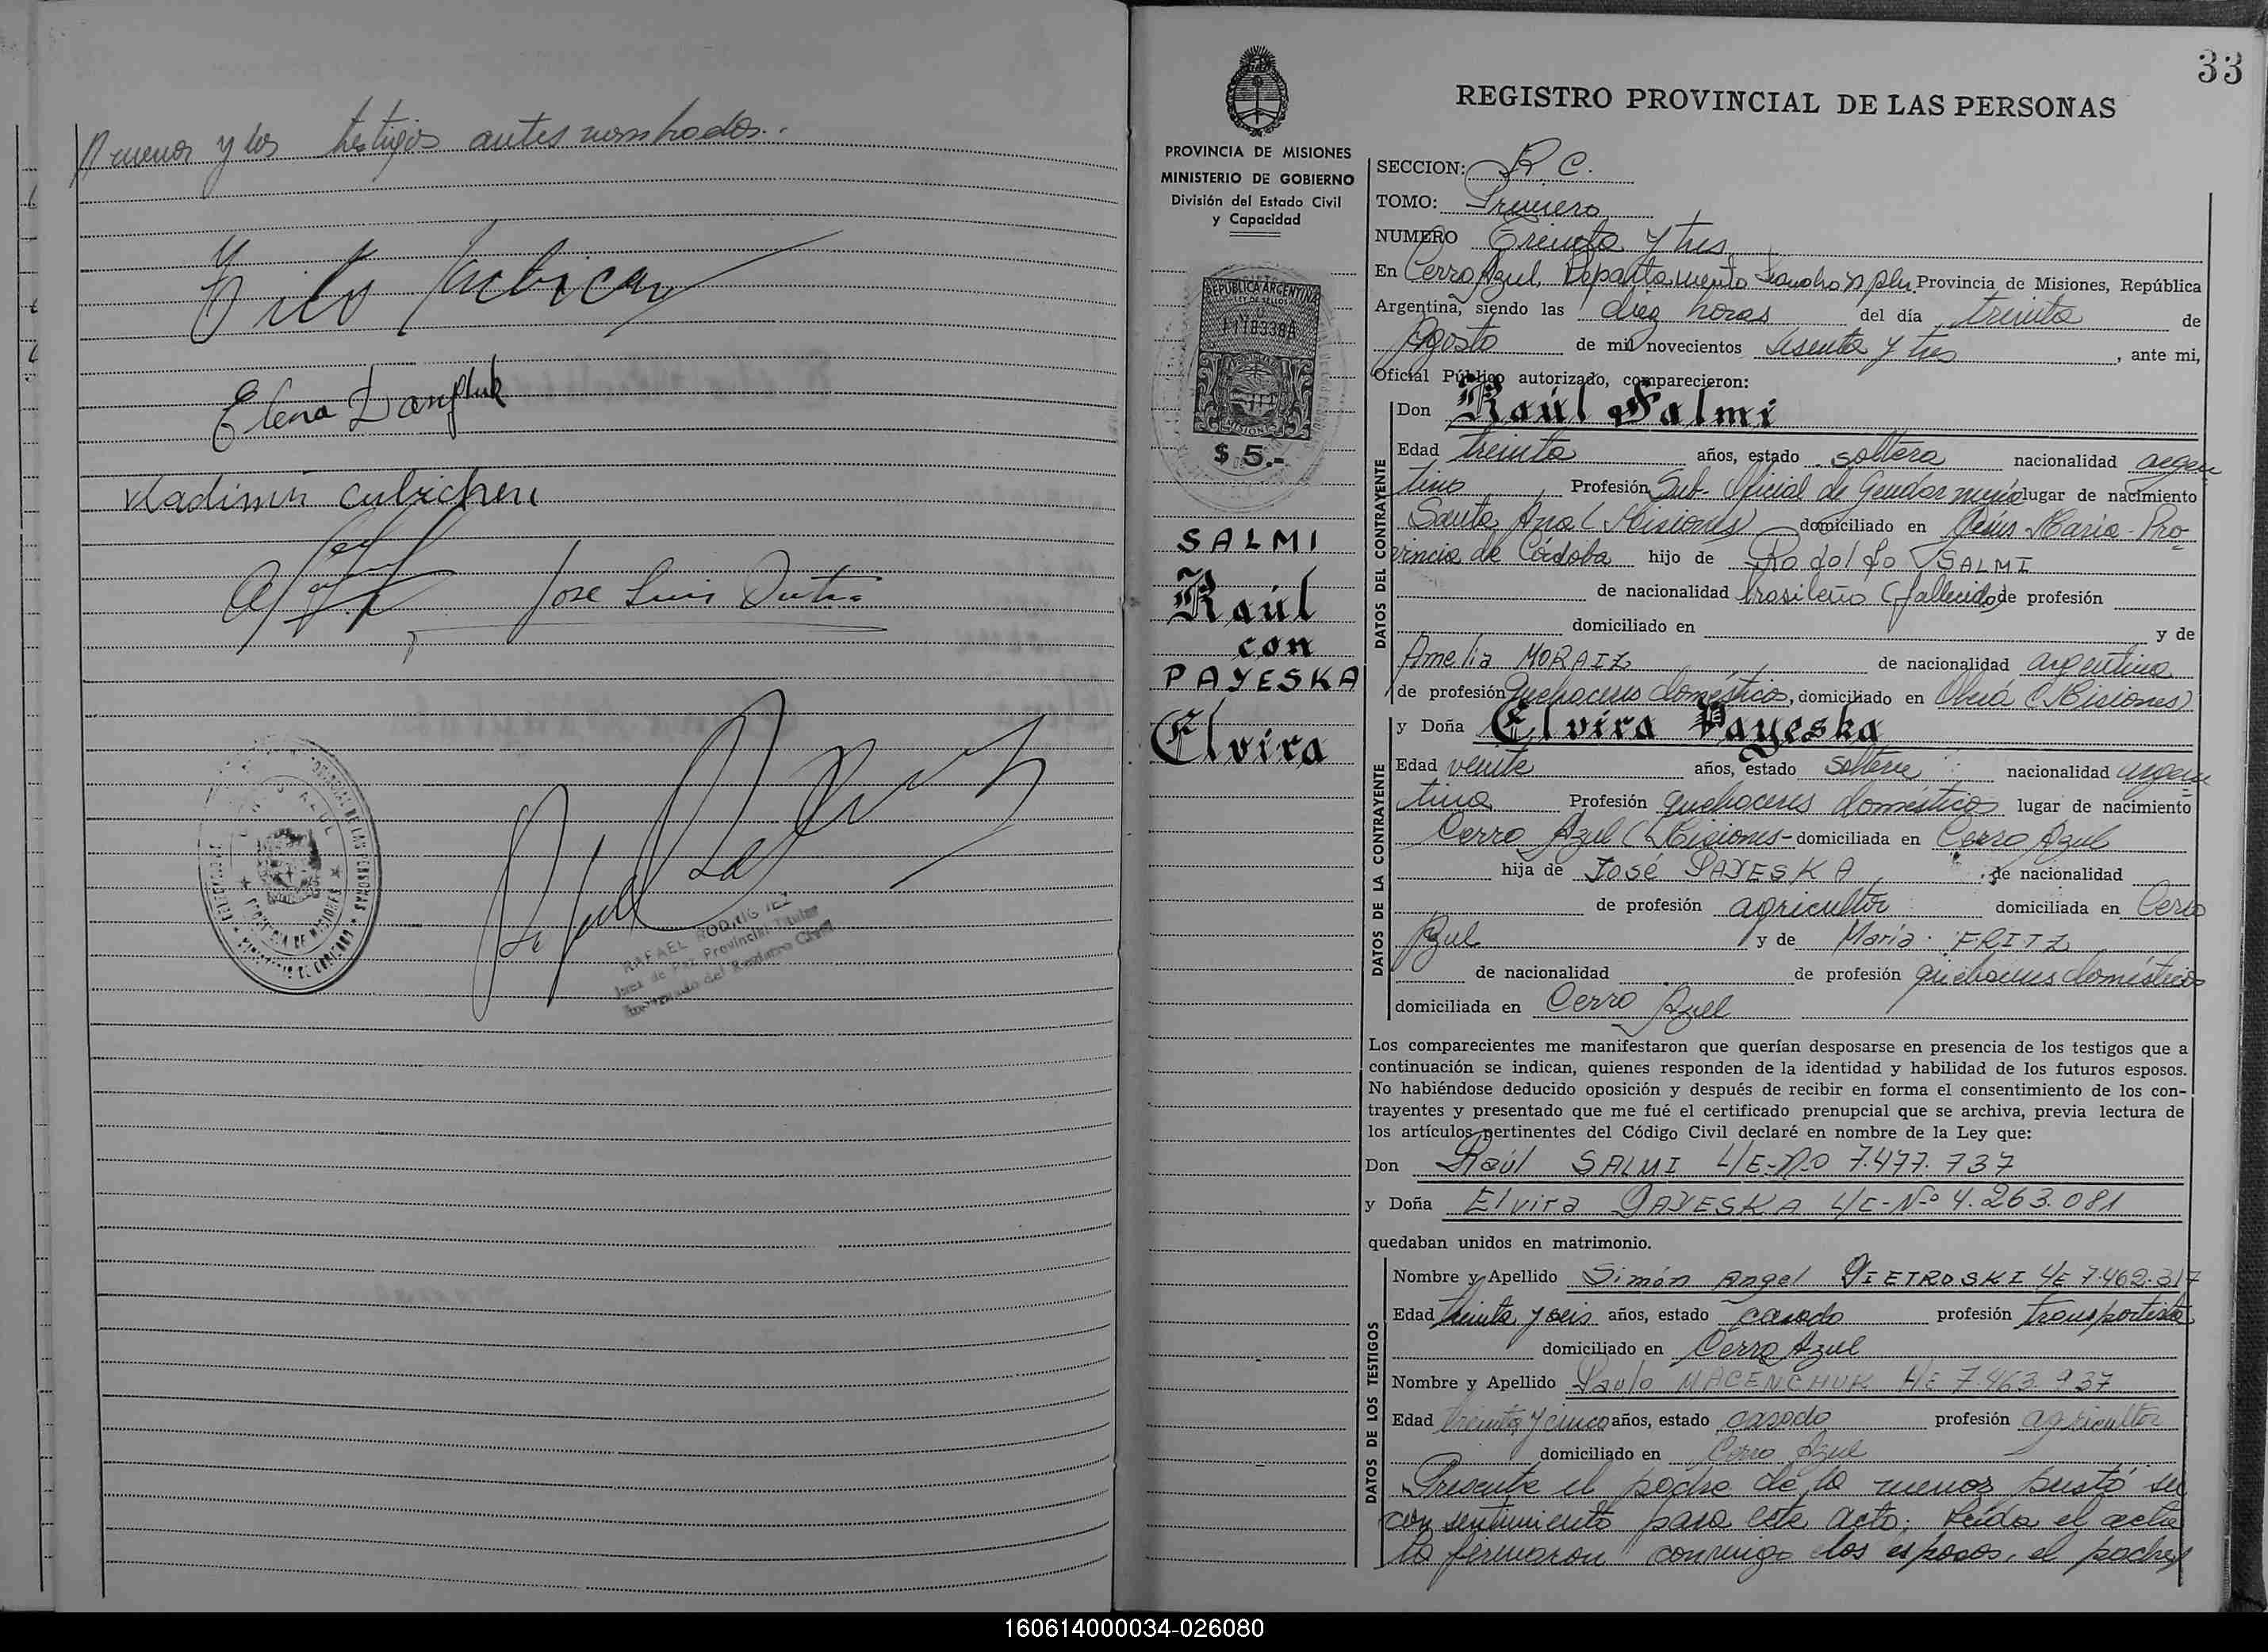 menor y los testigos antes nombrados.
Elena
Vladimir
Jose Luis Dutra
RAFAEL RODRIGUEZ
Juez de Paz Provincial Titular
Encargado del Registro Civil
33
REGISTRO PROVINCIAL DE LAS PERSONAS
PROVINCIA DE MISIONES
MINISTERIO DE GOBIERNO
División del Estado Civil
y Capacidad
REPUBLICA ARGENTINA
LEY DE SELLOS
MISIONES
$ 5.-
SALMI
Raúl
con
PAYESKA
Elvira
SECCION: R. C.
TOMO: Primero
NUMERO Treinta y tres
En Cerro Azul, Departamento Leandro N Alem Provincia de Misiones, República
Argentina, siendo las diez horas del día treinta de
Agosto de mil novecientos sesenta y tres, ante mi,
Oficial Público autorizado, comparecieron:
DATOS DEL CONTRAYENTE
Don Raúl Salmi
Edad treinta años, estado soltero nacionalidad argen
tino Profesión Sub-Oficial de Gendarmería lugar de nacimiento
Santa Ana (Misiones) domiciliado en Jesús María - Pro-
vincia de Córdoba hijo de Rodolfo SALMI
de nacionalidad brasileño (fallecido) de profesión
domiciliado en y de
Amelia MORAIZ de nacionalidad argentina
de profesión quehaceres domésticos, domiciliado en Oberá (Misiones)
DATOS DE LA CONTRAYENTE
y Doña Elvira Payeska
Edad veinte años, estado soltera nacionalidad argen
tina Profesión quehaceres domésticos lugar de nacimiento
Cerro Azul (Misiones- domiciliada en Cerro Azul
hija de José PAYESKA de nacionalidad
de profesión agricultor domiciliada en Cerro
Azul y de María FRITZ
de nacionalidad de profesión quehaceres domésticos
domiciliada en Cerro Azul
Los comparecientes me manifestaron que querían desposarse en presencia de los testigos que a
continuación se indican, quienes responden de la identidad y habilidad de los futuros esposos.
No habiéndose deducido oposición y después de recibir en forma el consentimiento de los con-
trayentes y presentado que me fué el certificado prenupcial que se archiva, previa lectura de
los artículos pertinentes del Código Civil declaré en nombre de la Ley que:
Don Raúl SALMI L/E-Nº 7.477.737
y Doña Elvira PAYESKA L/C-Nº 4.263.081
quedaban unidos en matrimonio.
DATOS DE LOS TESTIGOS
Nombre y Apellido Simón Angel PIETROSKI L/E 7.462.317
Edad treinta y seis años, estado casado profesión transportista
domiciliado en Cerro Azul
Nombre y Apellido Paulo MACENCHUK L/E 7.463.937
Edad treinta y cinco años, estado casado profesión agricultor
domiciliado en Cerro Azul
Presente el padre de la menor prestó su
consentimiento para este acto; Leída el acta
la firmaron conmigo los esposos, el padre
160614000034-026080